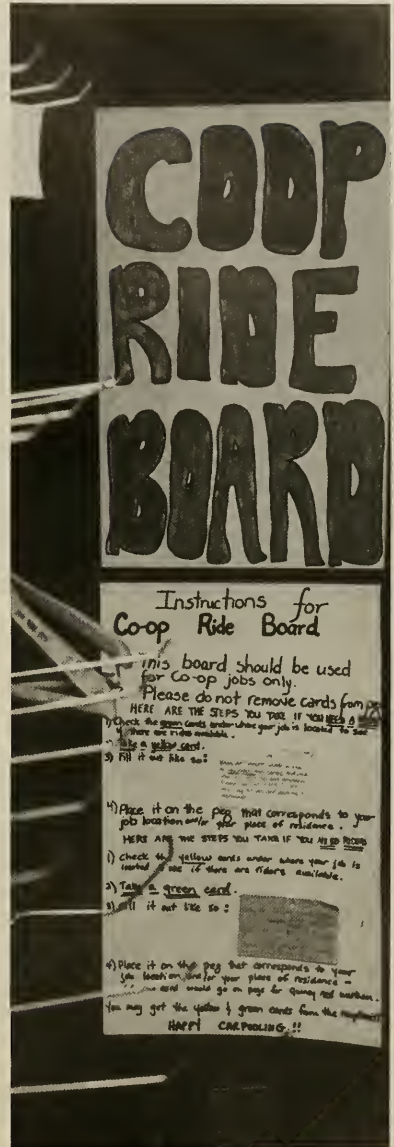 COOP
RIDE
BOARD
Instructions for
Co-op Ride Board
This board should be used
for Co-op jobs only.
Please do not remove cards from
HERE ARE THE STEPS YOU TAKE IF YOU NEED A
1) Check the green cards under where your job is located to see
if there are rides available.
2) Take a yellow card.
3) Fill it out like so:
4) Place it on the peg that corresponds to your
job location and/or your place of residence.
HERE ARE THE STEPS YOU TAKE IF YOU NEED RIDERS
1) Check the yellow cards under where your job is
located to see if there are riders available.
2) Take a green card.
3) Fill it out like so:
4) Place it on the peg that corresponds to your
job location and/or your place of residence -
card would go on pegs for Quincy and
You may get the yellow & green cards from the
HAPPY CARPOOLING!!